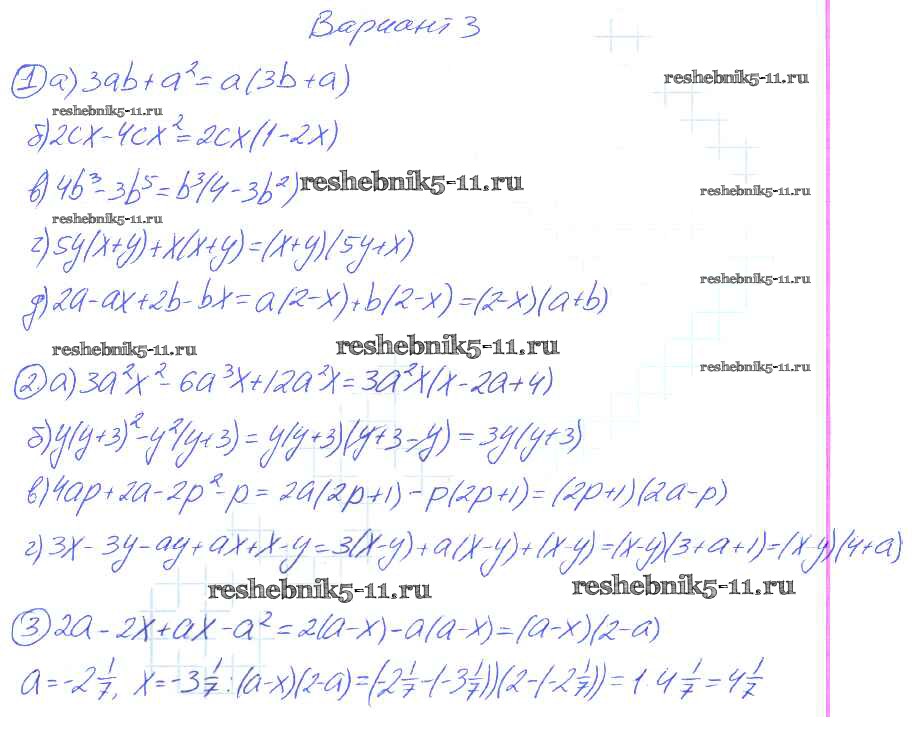 Вариант 3
① а) 3ab + a² = a(3b + a)
reshebnik5-11.ru
reshebnik5-11.ru
б) 2cx - 4cx² = 2cx(1 - 2x)
в) 4b³ - 3b⁵ = b³(4 - 3b²)
reshebnik5-11.ru
reshebnik5-11.ru
reshebnik5-11.ru
г) 5y(x+y) + x(x+y) = (x+y)(5y+x)
reshebnik5-11.ru
д) 2a - ax + 2b - bx = a(2-x) + b(2-x) = (2-x)(a+b)
reshebnik5-11.ru
reshebnik5-11.ru
reshebnik5-11.ru
② а) 3a²x² - 6a³x + 12a²x = 3a²x(x - 2a + 4)
б) y(y+3)² - y²(y+3) = y(y+3)(y+3-y) = 3y(y+3)
в) 4ap + 2a - 2p² - p = 2a(2p+1) - p(2p+1) = (2p+1)(2a-p)
г) 3x - 3y - ay + ax + x - y = 3(x-y) + a(x-y) + (x-y) = (x-y)(3+a+1) = (x-y)(4+a)
reshebnik5-11.ru
reshebnik5-11.ru
③ 2a - 2x + ax - a² = 2(a-x) - a(a-x) = (a-x)(2-a)
a = -2 1/7, x = -3 1/7 : (a-x)(2-a) = (-2 1/7 - (-3 1/7))(2 - (-2 1/7)) = 1 · 4 1/7 = 4 1/7